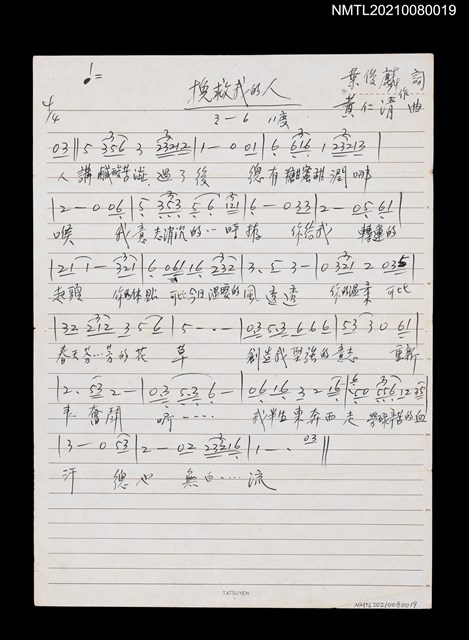 NMTL20210080019
♩=
挽救我的人
葉俊麟 詞
黃仁清 作曲
4/4
3–6 11度
03 || 5 356 3 23212 | 1 – 0 01 | 6 616 1 23213 |
人講鹹酸苦澀 過了後 總有糖蜜甜潤 哪
| 2 – 0 06 | 5 353 5 6 121 | 6 – 033 | 2 – 05 61 |
唉 我意志消沉的‥時擱 你給我 轉運的
| 21 1 – 321 | 6 061 16 232 | 3 . 5 3 – | 0 321 2 035 |
起頭 你的体貼 可比今日溫暖的風透透 你的溫柔 可比
| 32 212 3 5 6 | 5 - - - | 03 53 6 6 6 | 53 3 0 61 |
春天芬‥芳的花 草 創造我堅強的意志 重新
| 2 . 53 2 – | 03 5.3 6 – | 06 16 3 2 16 | 50 556 12 35 |
來奮鬥 我半生東奔西走 勞碌辛苦的血
| 3 – 0 53 | 2 – 02 23216 | 1 - . 03 ||
汗 總也 無白‥‥流
TATSUYEN
NMTL20210080019